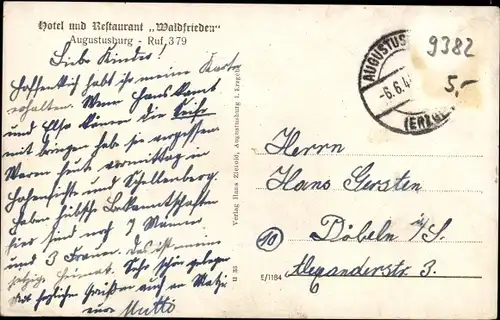 Hotel und Restaurant „Waldfrieden"
Augustusburg - Ruf 379
Liebe Kinder!
Hoffentlich habt ihr meine Karte
erhalten. Wenn Hans kommt
und Else können die Seife
mit bringen hab sie vergessen
Waren heut vormittag in
und Schellenberg.
haben hübsche Bekanntschaften
hier sind noch 7 Männer
und 3 Frauen. Das ist meine
jetzige Heimat. Sehr schön gelegen
Mit herzlichen Grüßen auch an
eure Mutti
Verlag Hans Zienold, Augustusburg i. Erzgeb.
u 33
E/1184
AUGUSTUS
-6.6.4
(ERZG
9382
5,-
Herrn
Hans Gersten
10
Döbeln i/S.
Alexanderstr. 3.